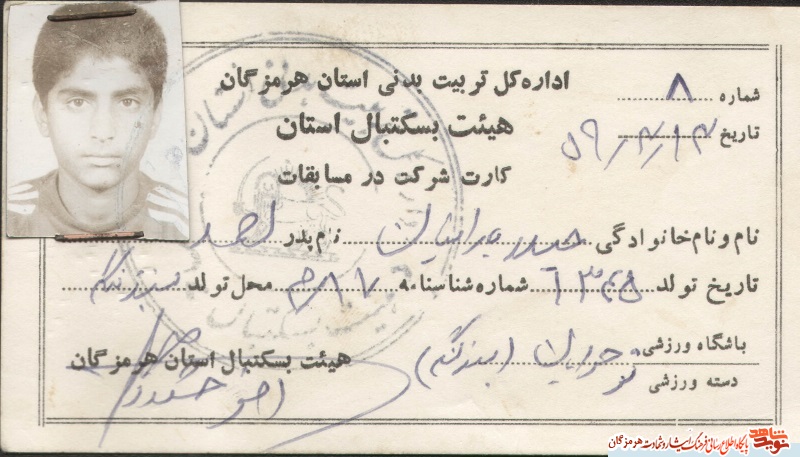 اداره‌کل تربیت بدنی استان هرمزگان
هیئت بسکتبال استان
کارت شرکت در مسابقات
شماره ۸
تاریخ ۵۹/۴/۱۴
نام و نام خانوادگی حیدر نام پدر احمد
تاریخ تولد ۱۳۴۵ شماره شناسنامه محل تولد بندرلنگه
باشگاه ورزشی
دسته ورزشی نوجوانان (بندرلنگه)
هیئت بسکتبال استان هرمزگان
نوید شاهد
پایگاه اطلاع رسانی فرهنگ ایثار و شهادت هرمزگان